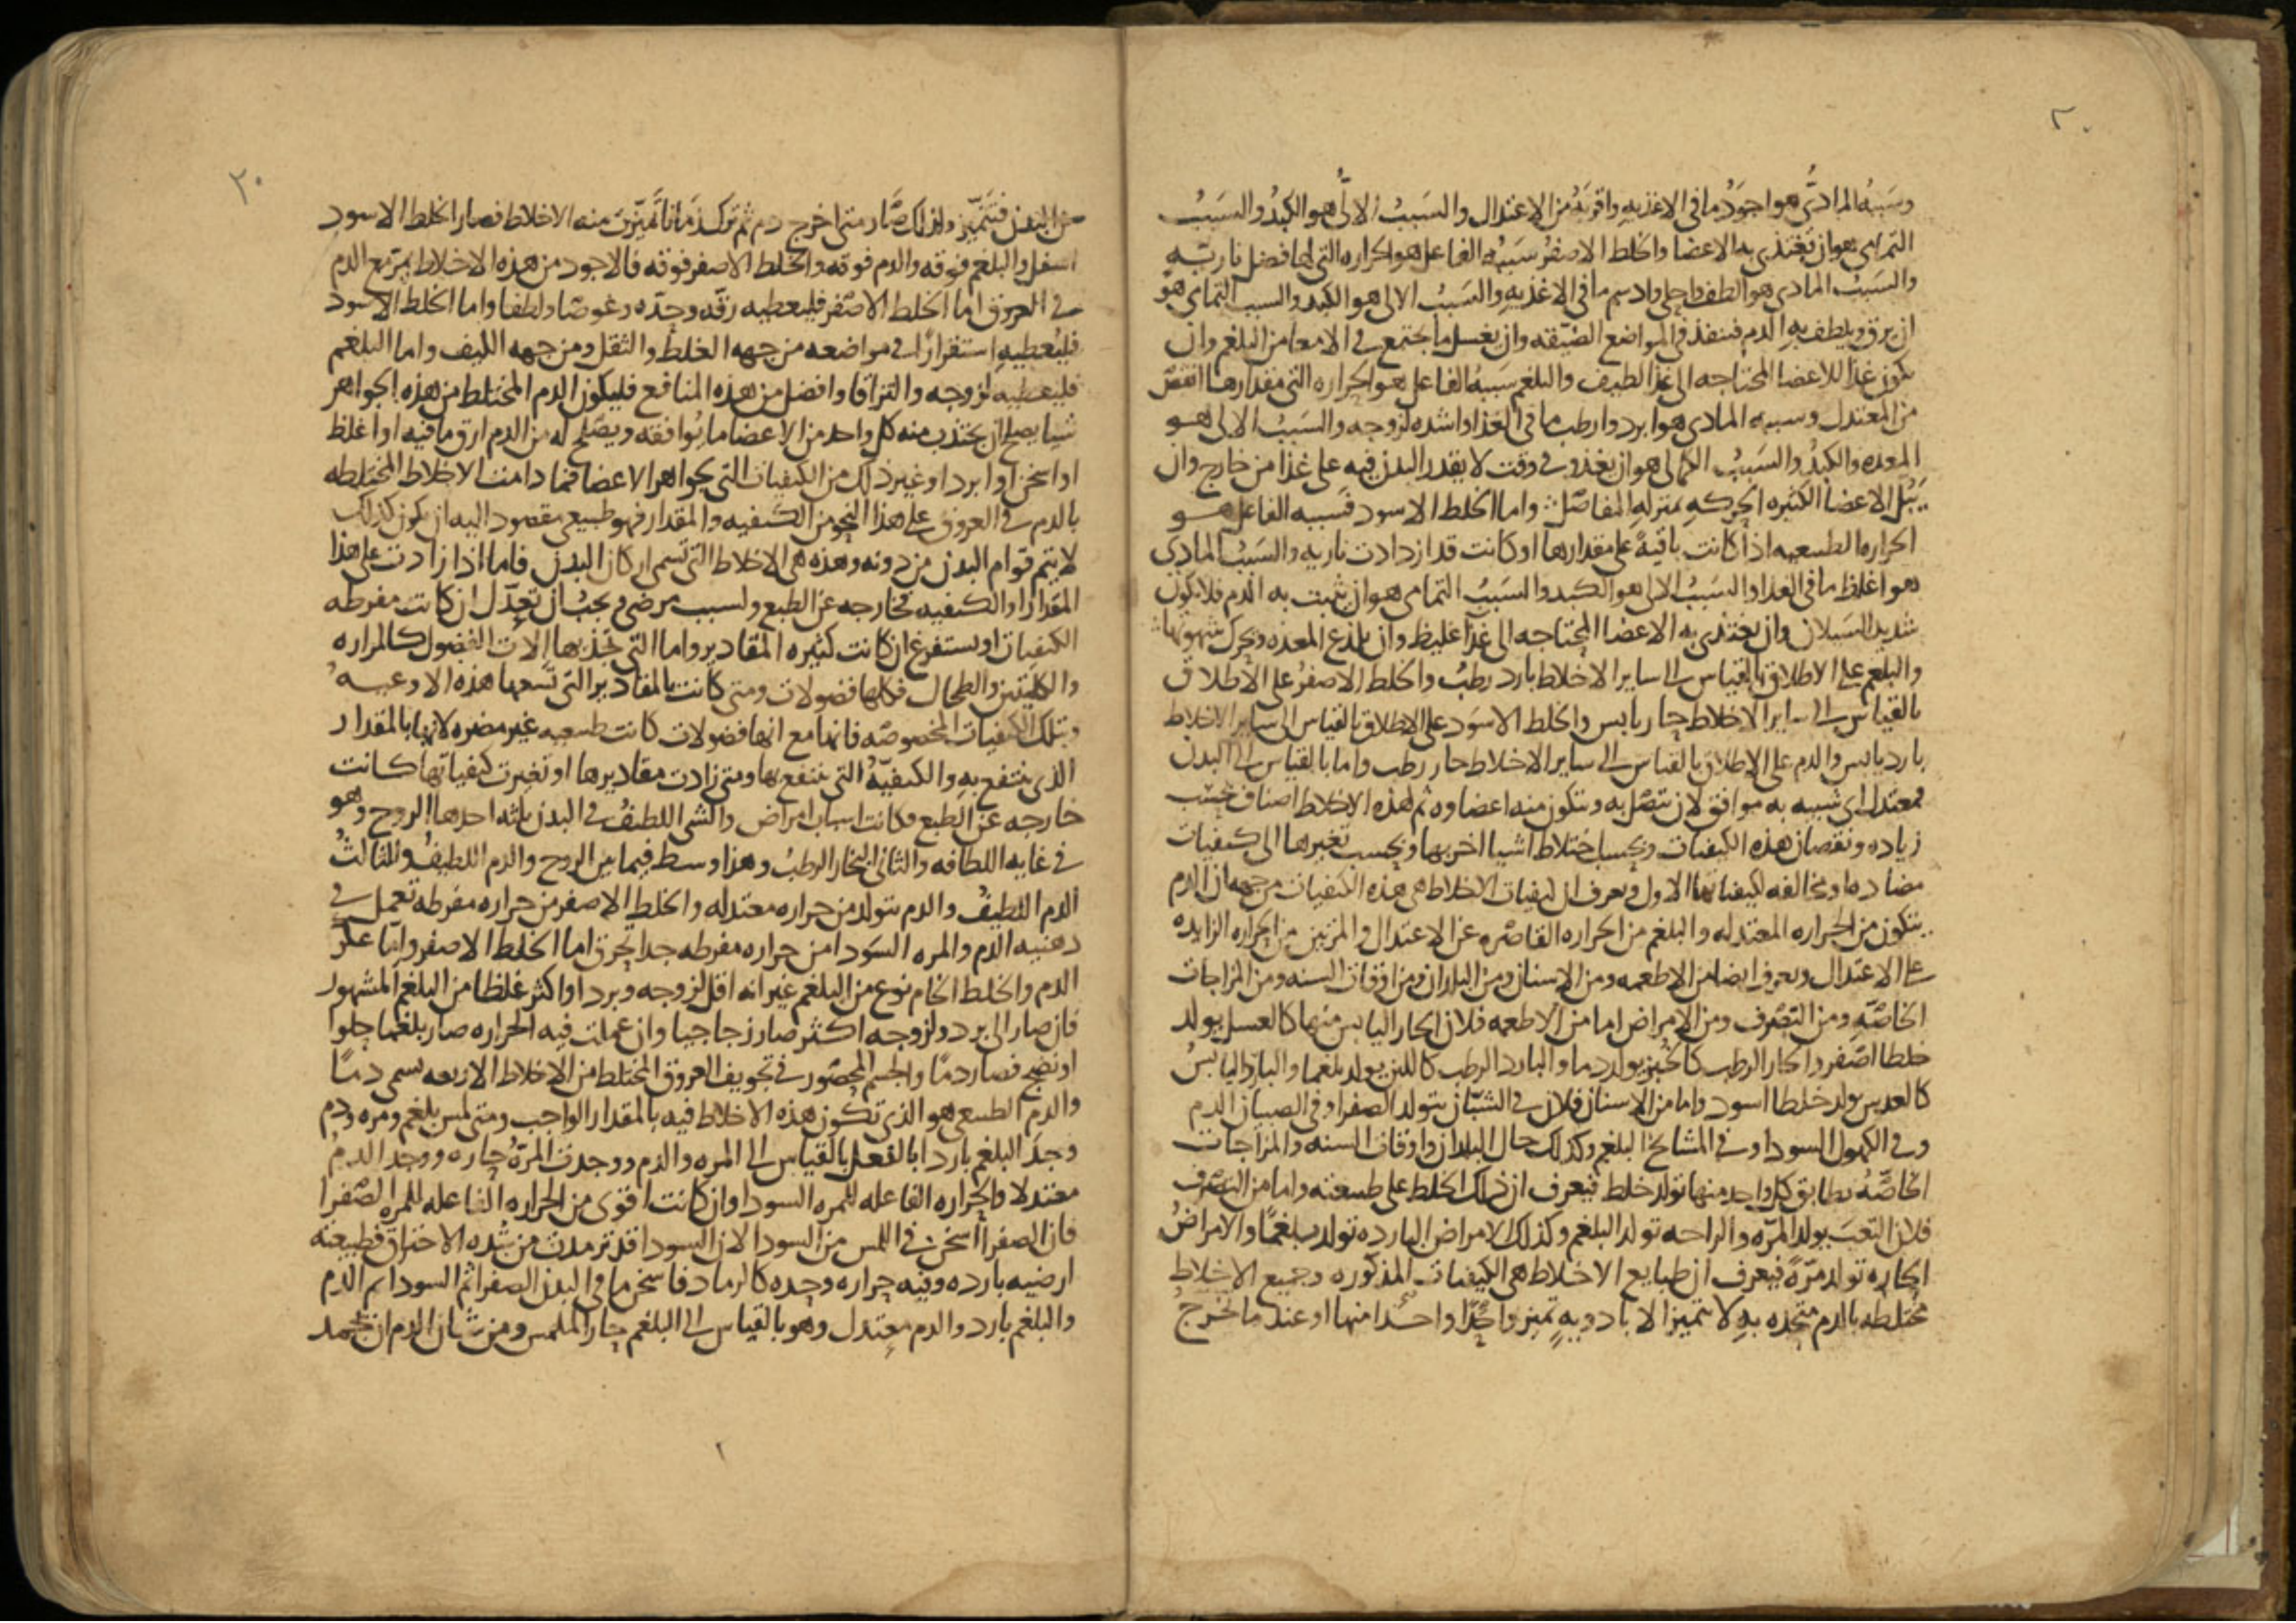 ٢٠
وسَببُه المادىُّ هو اجوَدُ ما فى الاغذيه واقربَهُ من الاعتدال والسَببُ الالىُّ هو الكبدُ والسَببُ
التمامى هو ان تغتذى به الاعضا والخلط الاصفرُ سَببُه الفاعل هو الحراره التى لها فضل ناريّه
والسَببُ المادى هو الطف واحلى وادسم ما فى الاغذيهِ والسَببُ الالى هو الكبد والسبب التمامى هو
ان يرق ويلطف بهِ الدم فينفذ فى المواضع الضيّقه وان يغسل ما يجتمع فى الامعا من البلغم وان
يكون غذا للاعضا المحتاجه الى غذا لطيف والبلغم سَببُه الفاعل هو الحراره التى مقدارها انقصُ
من المعتدل وسببه المادى هو ابرد وارطب ما فى الغذا واشده لزوجه والسَببُ الالى هو
المعده والكبدُ والسَببُ الكمالى هو ان يغذو فى وقت لا يقدر البدن فيه على غذا من خارج وان
يَبُل الاعضا الكثيره الحركهِ بمنزلهِ المفاصل واما الخلط الاسود فسببه الفاعل هو
الحراره الطبيعيه اذا كانت باقيهً على مقدارها او كانت قد ازدادت ناريه والسَببُ المادى
هو اغلظ ما فى الغذا والسَببُ الالى هو الكبد والسَببُ التمامى هو ان يثبت به الدم فلا يكون
شديد السَيلان وان يغتذى به الاعضا المحتاجه الى غذا غليظ وان يلذع المعده ويحرك شهوتها
والبلغم على الاطلاق بالقياس الى ساير الاخلاط بارد رطبُ والخلط الاصفرُ على الاطلاق
بالقياس الى ساير الاخلاط حار يابس والخلط الاسوَد على الاطلاق بالقياس الى ساير الاخلاط
بارد يابس والدم على الاطلاق بالقياس الى ساير الاخلاط حار رطب واما بالقياس الى البدن
فمعتدل اى شبيه به موافق لان تتصل به وتتكون منه اعضاوه ثم لهذه الاخلاط اصناف بحسَب
زياده ونقصان هذه الكيفيات وبحسب اختلاط اشيا اخر بها وبحسب تغيرها الى كيفيات
مضاده او مخالفه لكيفياتها الاول ويعرف ان كيفيات الاخلاط هى هذه الكيفيات من جهه ان الدم
يتكون من الحراره المعتدله والبلغم من الحراره القاصره عن الاعتدال والمرتين من الحراره الزايده
على الاعتدال ويعرف ايضا من الاطعمه ومن الاسنان ومن البلدان ومن اوقات السنه ومن المزاجات
الخاصّهِ ومن التصرف ومن الامراض اما من الاطعمه فلان الحار اليابس منها كالعسل يولد
خلطا اصفر والحار الرطب كالخبز يولد دما والبارد الرطب كاللبن يولد بلغما والبارد اليابسُ
كالعدس يولد خلطا اسود واما من الاسنان فلان فى الشبّان يتولد الصفرا وفى الصبيان الدم
وفى الكهول السودا وفى المشايخ البلغم وكذلك حال البلدان واوقات السنه والمزاجات
الخاصّهُ يطابق كل واحد منها تولد خلط فيعرف ان ذلك الخلط على طبيعته واما من التصرف
فلان التعَبَ يولد المرّه والراحه تولد البلغم وكذلك الامراض البارده تولد بلغمًا والامراضُ
الحاره تولد مرّهً فيعرف ان طبايع الاخلاط هى الكيفيات المذكوره وجميع الاخلاطِ
مختلطه بالدم متحده بهِ لا تتميز الا بادويهٍ تميز واحدًا واحدا منها او عند ما تخرجُ
٢٠
من البدن فتتميّز ولذلك صَار متى اخرج دم ثم ترك زمانا تميّزت منه الاخلاط فصار الخلط الاسود
اسفل والبلغم فوقه والدم فوقه والخلط الاصفر فوقه فالاجود من هذه الاخلاط يمر مع الدم
فى العروق اما الخلط الاصفر فليعطيه رقّه وحِدّه وغوصًا ولطفا واما الخلط الاسود
فليُعطيهِ استقرارًا فى مواضعه من جهه الغلظ والثقل ومن جهه الليف واما البلغم
فليعطيه لزوجه والتزاقا وافضل من هذه المنافع فليكون الدم المختلط من هذه الجواهر
شيا يصلح ان يجتذب منه كل واحد من الاعضا ما يُوافقه ويصلح له من الدم ارق ما فيه او اغلظ
او اسخن او ابرد او غير ذلك من الكيفيات التى بجواهر الاعضا فما دامت الاخلاط المختلطه
بالدم فى العروق على هذا النحو من الكيفيه والمقدار فهو طبيعى مقصود اليه ان يكون كذلك
لا يتم قوام البدن من دونه وهذه هى الاخلاط التى تسمى اركان البدن فاما اذا زادت على هذا
المقدار او الكيفيه فخارجه عن الطبع ولسبب مرضى يجبُ ان تعدّل ان كانت مفرطه
الكيفيات او يستفرغ ان كانت كثيره المقادير واما التى تجذبها الات الفضول كالمراره
والكليتين والطحال فكلها فضولات ومتى كانت بالمقادير التى تسَعها هذه الاوعيه
وبتلك الكيفيات المخصوصه فانها مع انها فضولات كانت طبيعيه غير مضره لانها بالمقدار
الذى ينتفع بهِ والكيفيّهُ التى ينتفع بها ومتى زادت مقاديرها او تغيرت كيفياتها كانت
خارجه عن الطبع وكانت اسباب امراض والشى اللطيفُ فى البدن ثلثه احدها الروح وهو
فى غايه اللطافه والثانى البخار الرطبُ وهذا وسط فيما بين الروح والدم اللطيفُ والثالثُ
الدم اللطيفُ والدم يتولد من حراره معتدله والخلط الاصفر من حراره مفرطه تعمل فى
دهنيه الدم والمره السودا من حراره مفرطه جدا تحرق اما الخلط الاصفر واما عكر
الدم والخلط الخام نوع من البلغم غير انه اقل لزوجه وبردا واكثر غلظا من البلغم المشهور
فان صار الى برد ولزوجه اكثر صار زجاجيا وان عملت فيه الحراره صار بلغما حلوا
او نضج فصار دمًا والجسم المحصور فى تجويف العروق المختلط من الاخلاط الاربعه يسمى دمًا
والدم الطبيعى هو الذى تكون هذه الاخلاط فيه بالمقدار الواجب ومتى لمس بلغم ومره ودم
وجدَ البلغم باردا بالفعل بالقياس الى المره والدم ووجدت المرّهُ حاره ووجد الدمُ
معتدلا والحراره الفاعله للمره السودا وان كانت اقوى من الحراره الفاعله للمره الصفرا
فان الصفرا اسخن فى اللمس من السودا لان السودا قد ترمدت من شده الاحتراق فطبيعته
ارضيه بارده وفيه حراره وحِده كالرماد فاسخن ما فى البدن الصفرا ثم السودا ثم الدم
والبلغم بارد والدم معتدل وهو بالقياس الى البلغم حار الملمس ومن شان الدم ان يجمد